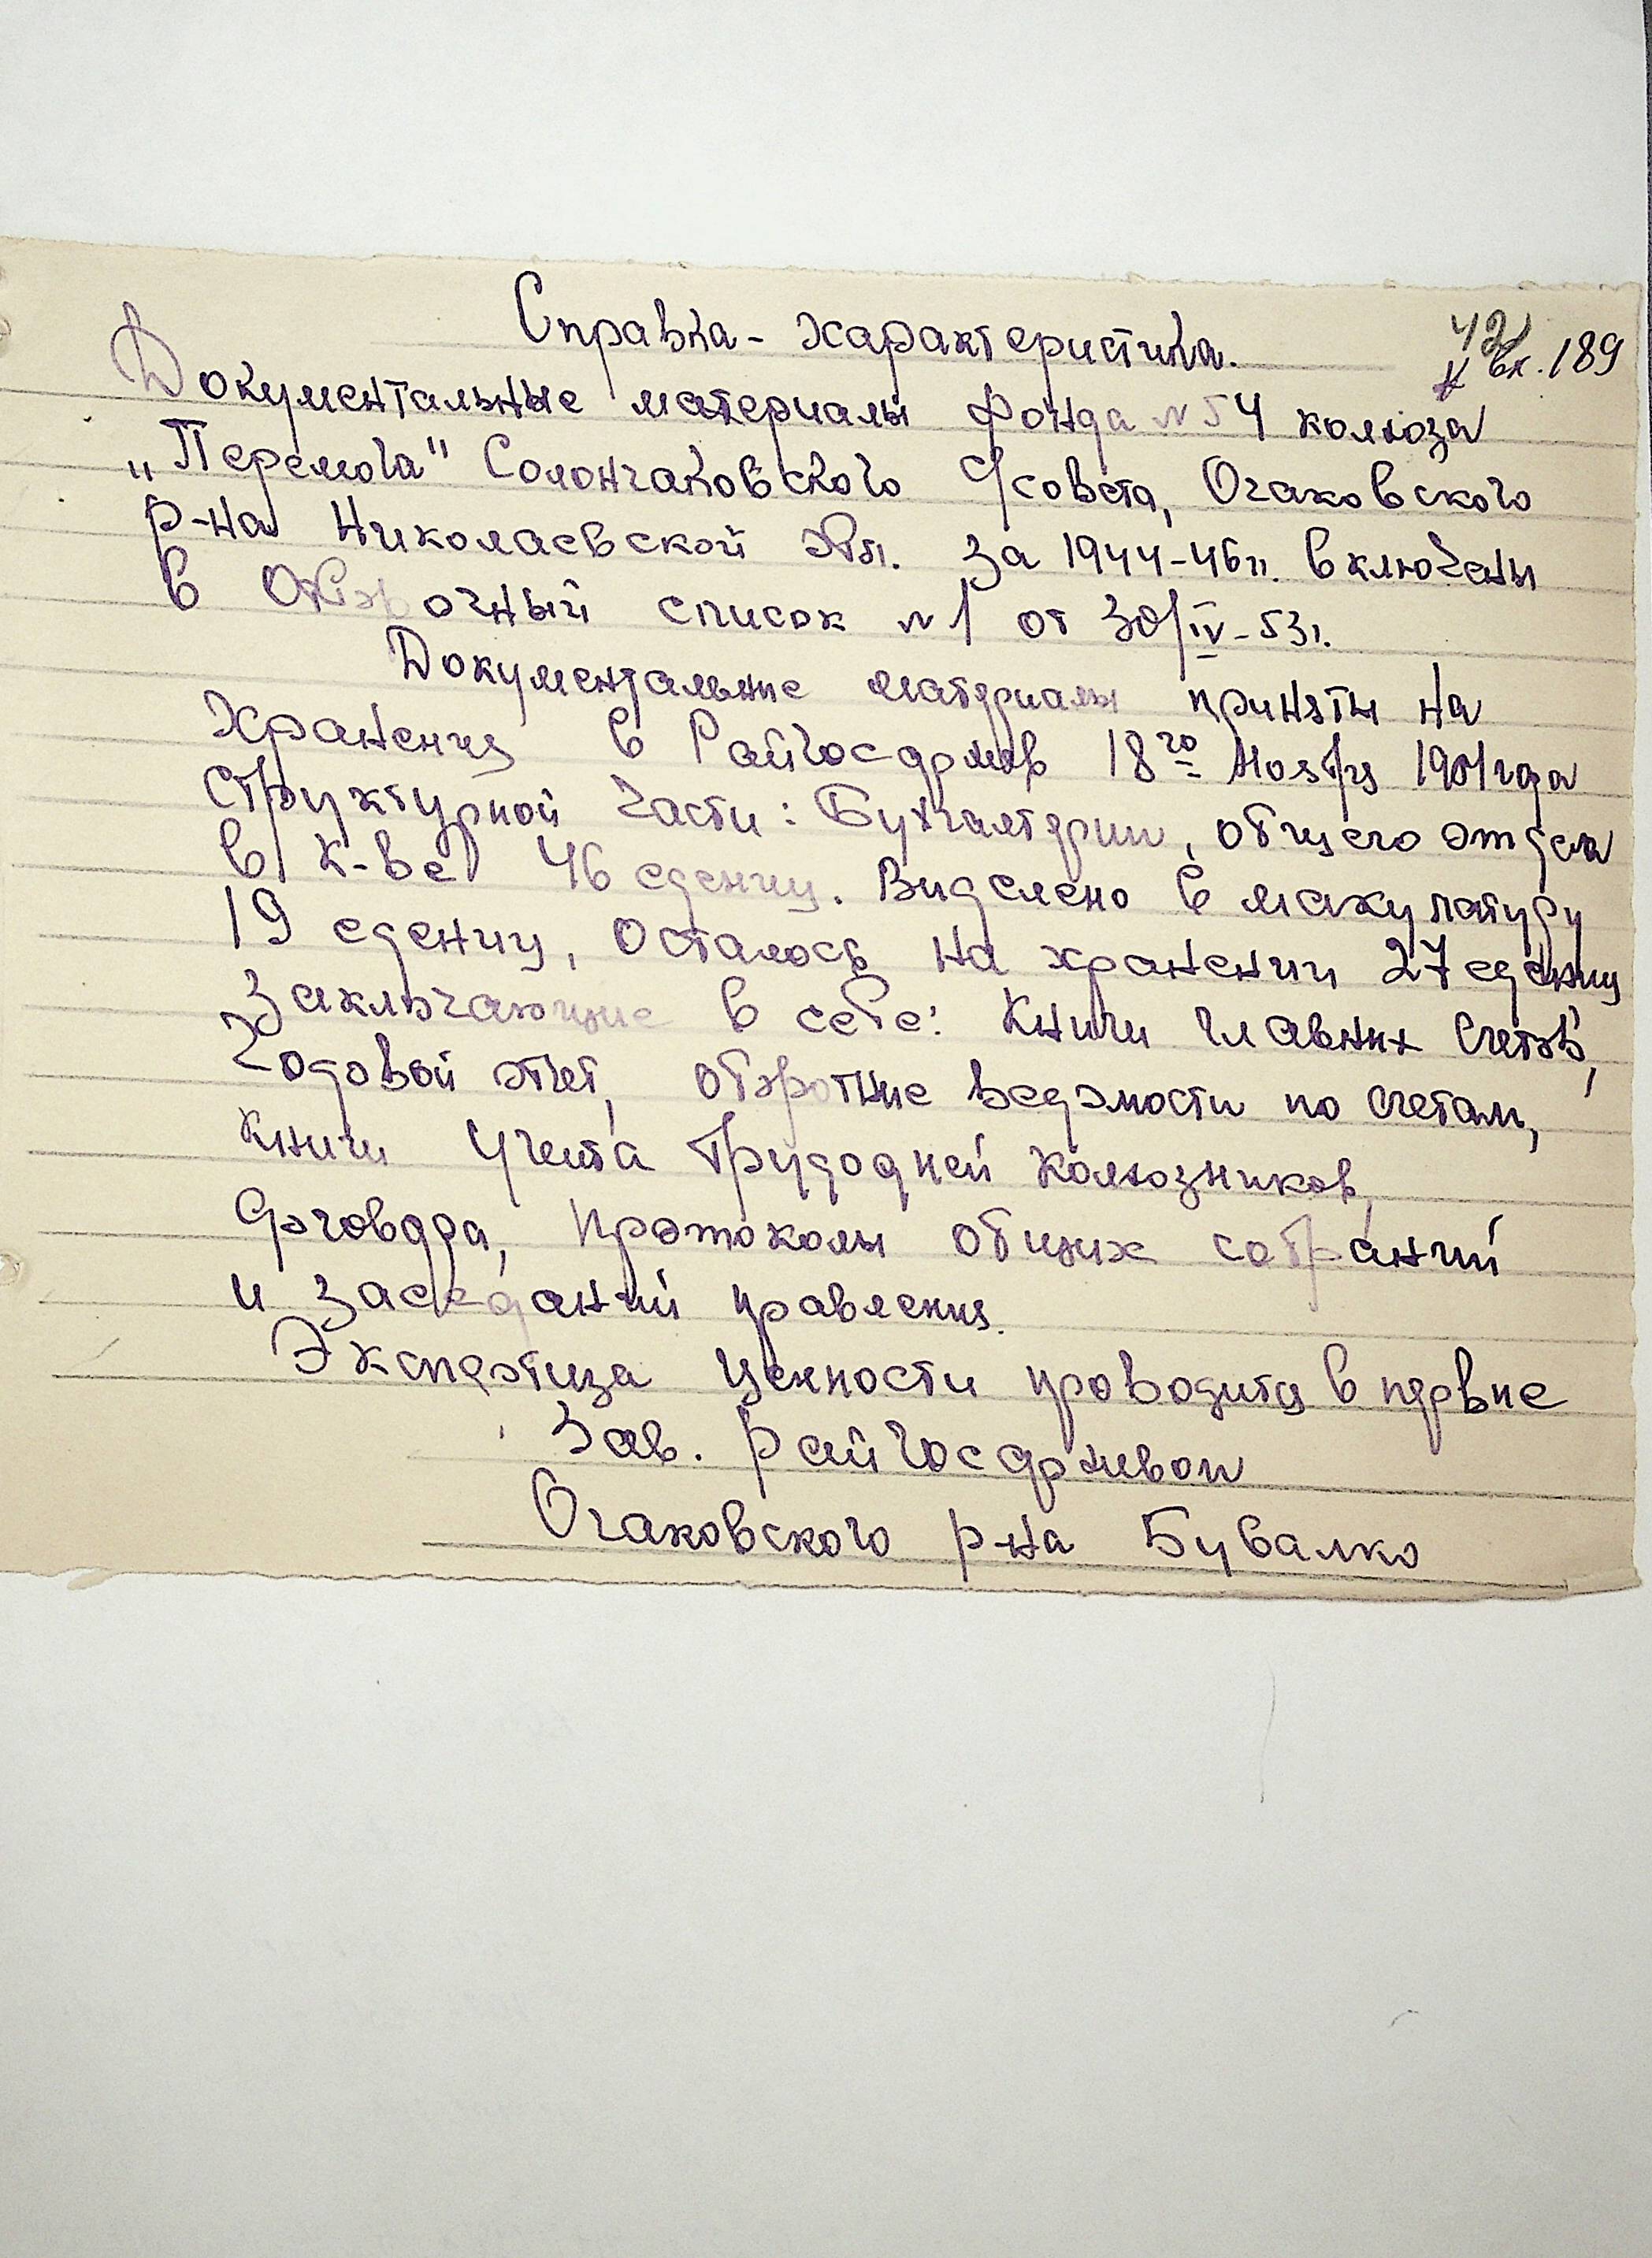 Справка-характеристика.
42
к вх. 189
Документальные материалы фонда №54 колхоза
„Перемога" Солончаковского с/совета, Очаковского
р-на Николаевской обл. за 1944-46гг. включены
в Отборочный список №1 от 30/IV-53г.
Документальные материалы приняты на
хранения в Райгосархив 18го Ноября
структурной части: Бухгалтерии, общего отдела
в к-ве 46 едениц. Виделено в макулатуру
19 едениц, осталось на хранении 27 едениц
заключающие в себе: Книги главних счетов,
Годовой отчет, оборотние ведомости по счетам,
книги учета трудодней колхозников,
договора, протоколы общих собраний
и заседаний правления.
Экспертиза ценности проводится в первие
Зав. Райгосархивом
Очаковского р-на Бувалко